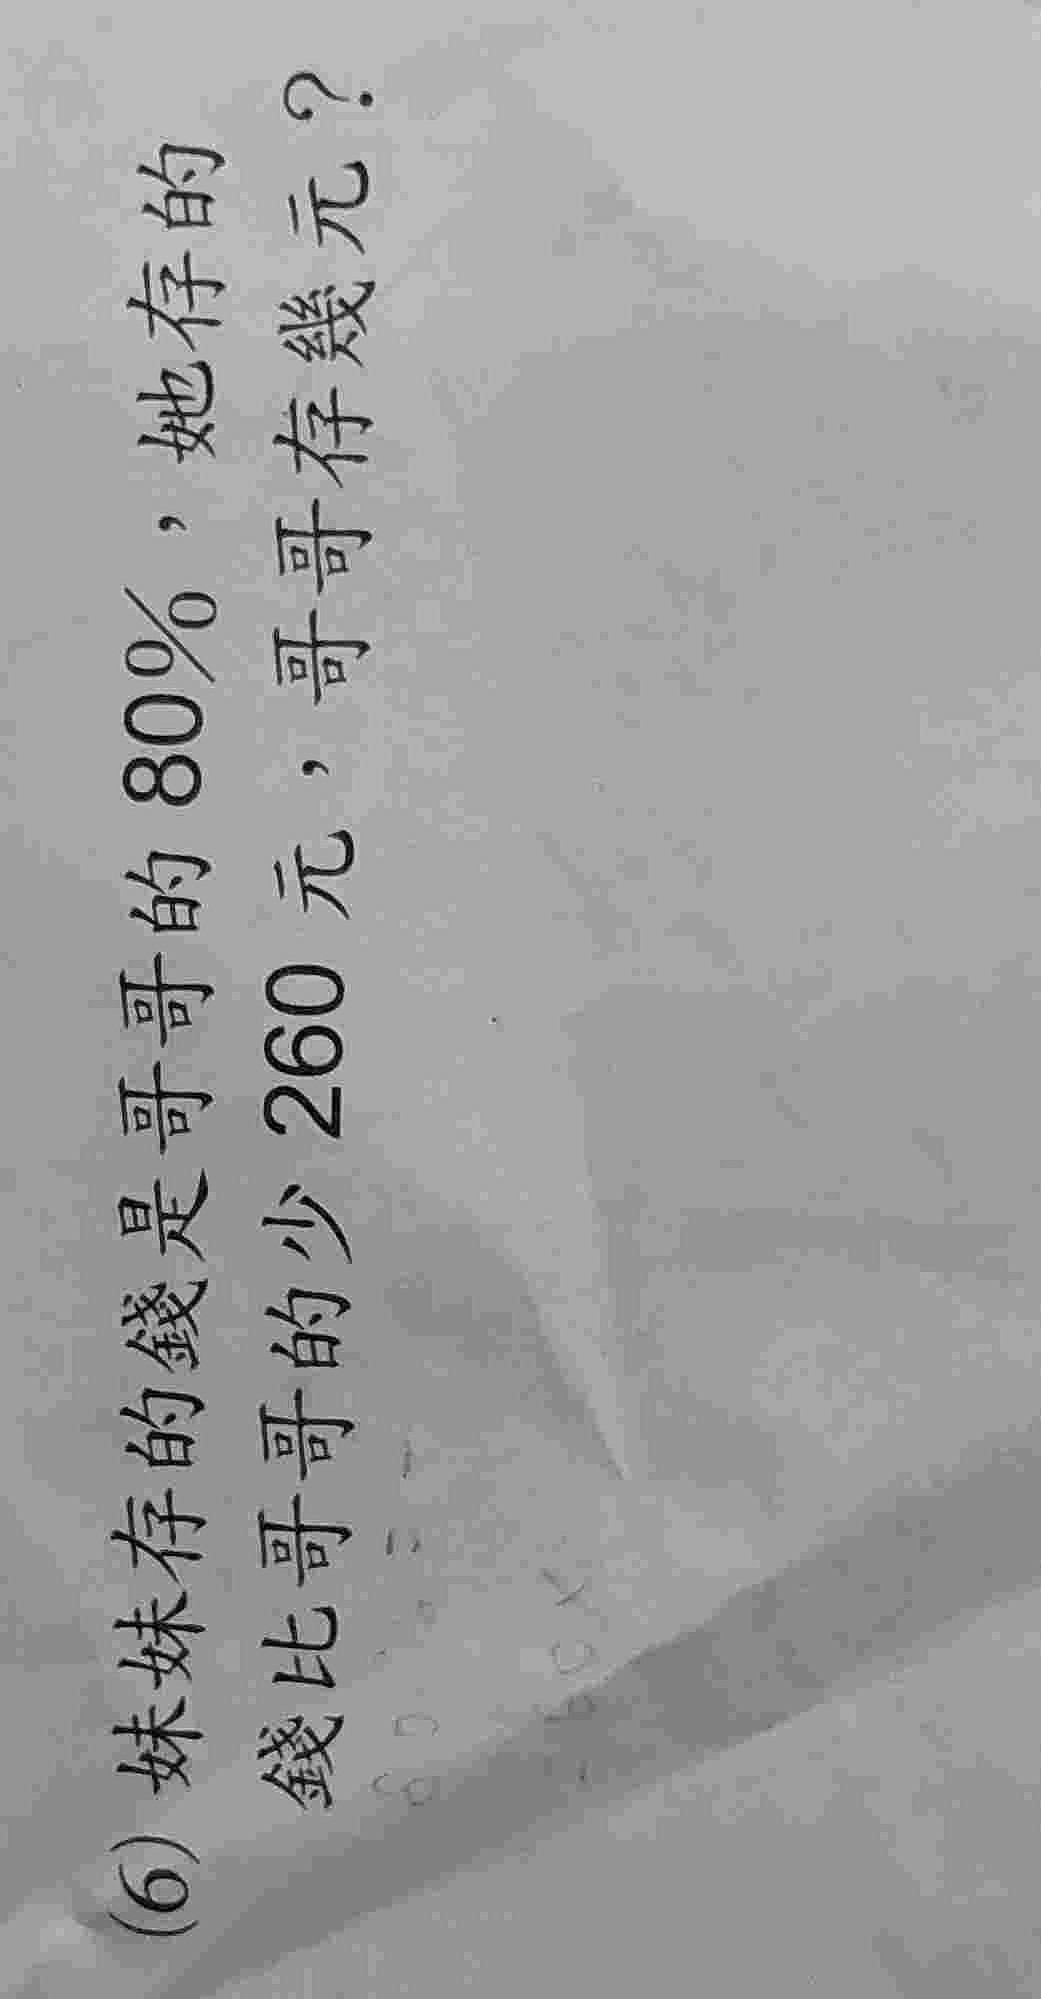 (6) 妹妹存的錢是哥哥的 80%，她存的
錢比哥哥的少 260 元，哥哥存幾元？